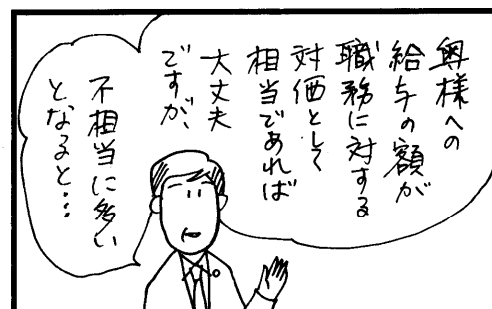 奥様への
給与の額が
職務に対する
対価として
相当であれば
大丈夫
ですが、
不相当に多い
となると…